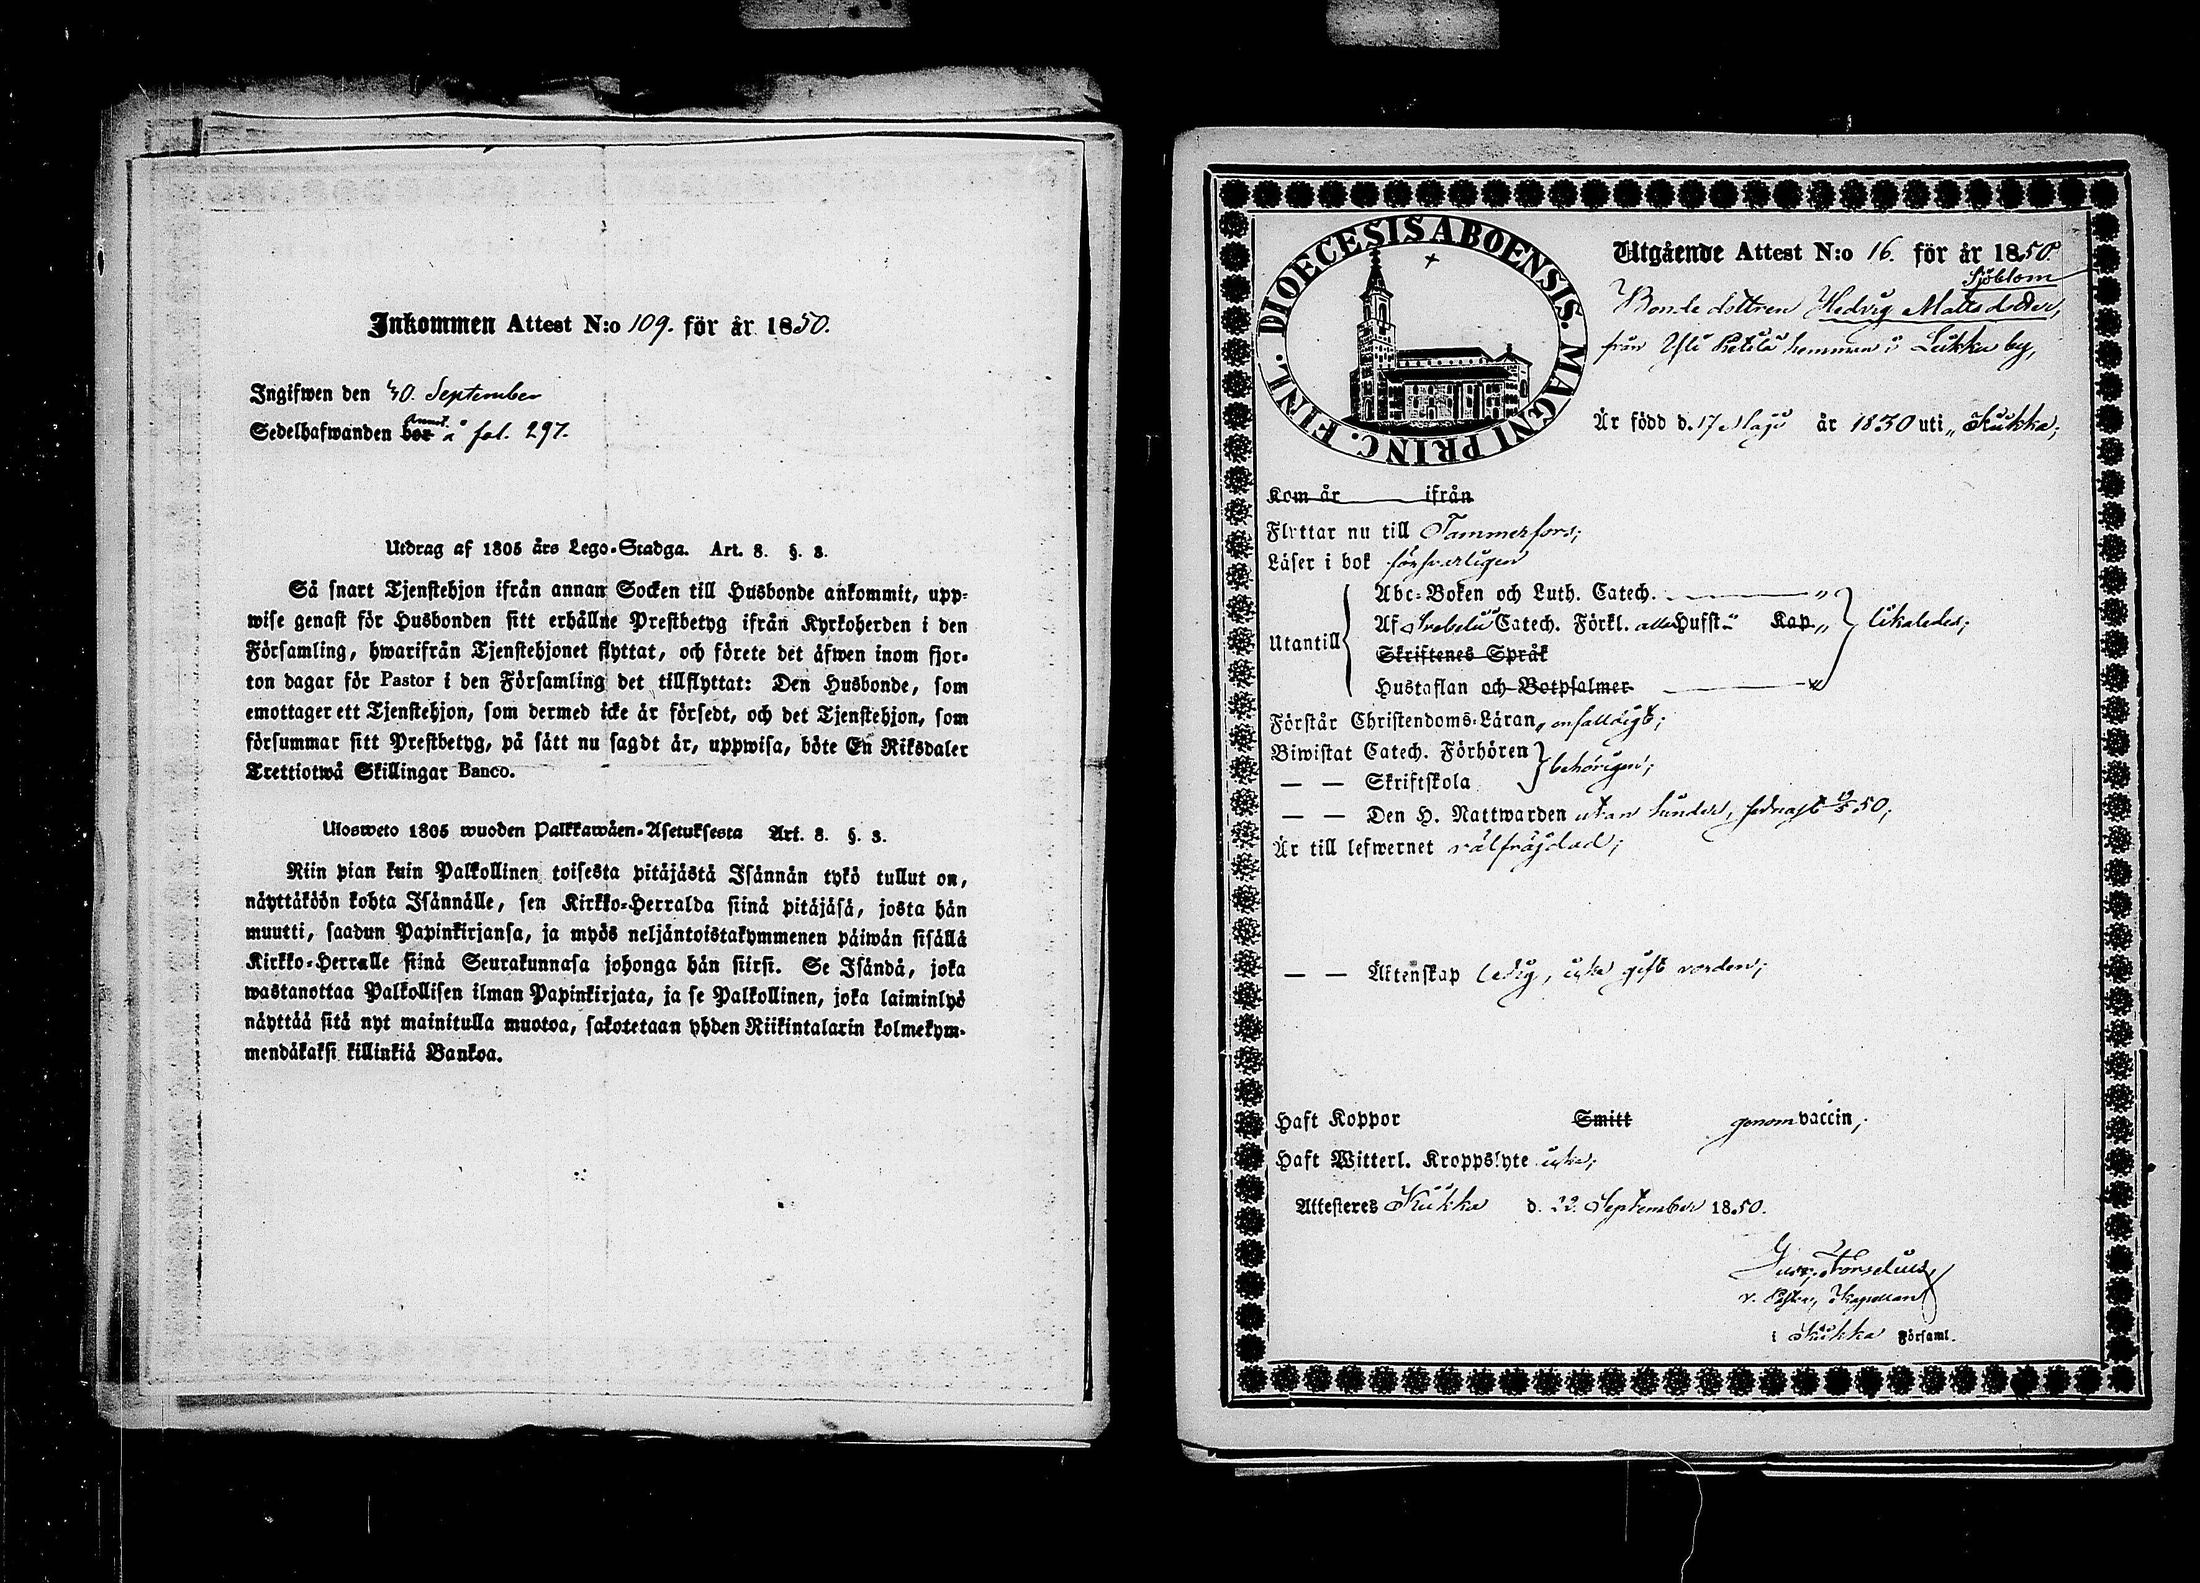 Inkommen Attest N:o 109. för år 1850.
Ingifwen den 30. September
Sedelhafwanden bor annot. å fol. 297.
Utdrag af 1805 års Lego-Stadga. Art. 8. §. 3.
Så snart Tjenstehjon ifrån annan Socken till Husbonde ankommit, upp-
wise genast för Husbonden sitt erhållne Prestbetyg ifrån Kyrkoherden i den
Församling, hwarifrån Tjenstehjonet flyttat, och förete det äfwen inom fjor-
ton dagar för Pastor i den Församling det tillflyttat: Den Husbonde, som
emottager ett Tjenstehjon, som dermed icke är försedt, och det Tjenstehjon, som
försummar sitt Prestbetyg, på sätt nu sagdt är, uppwisa, böte En Riksdaler
Trettiotwå Skillingar Banco.
Ulosweto 1805 wuoden Palkkawäen-Asetuksesta Art. 8. §. 3.
Niin pian kuin Palkollinen toisesta pitäjästä Isännän tykö tullut on,
näyttäköön kohta Isännälle, sen Kirkko-Herralda siinä pitäjäsä, josta hän
muutti, saadun Papinkirjansa, ja myös neljäntoistakymmenen päiwän sisällä
Kirkko-Herralle siinä Seurakunnasa johonga hän siirsi. Se Isändä, joka
wastanottaa Palkollisen ilman Papinkirjata, ja se Palkollinen, joka laiminlyö
näyttää sitä nyt mainitulla muotoa, sakotetaan yhden Riikintalarin kolmekym-
mendäkaksi killinkiä Bankoa.
DIOECESIS ABOENSIS. MAGNI PRINC. FINL.
Utgående Attest N:o 16. för år 1850.
Sjöblom
Bondedottren Hedvig Mattsdotter,
från Yli Ketola hemman i Lukka by,
Är född d. 17 Maji år 1830 uti Kiikka;
Kom år ifrån
Flyttar nu till Tammerfors;
Läser i bok försvarligen
Abc-Boken och Luth. Catech. "
Utantill Af Svebelii Catech. Förkl. alla Hufst. Kap. likaledes;
Skriftenes Språk
Hustaflan och Botpsalmer "
Förstår Christendoms-Läran enfalldigt;
Biwistat Catech. Förhören behörigen;
— — Skriftskola
— — Den H. Nattwarden utan hinder, sednast 12/5 50;
Är till lefwernet välfräjdad;
— — Äktenskap ledig, icke gift vorden;
Haft Koppor Smitt genom vaccin;
Haft Witterl. Kroppslyte icke;
Attesteres Kiikka d. 22. September 1850.
v. Pastor, Kapellan
i Kiikka Församl.